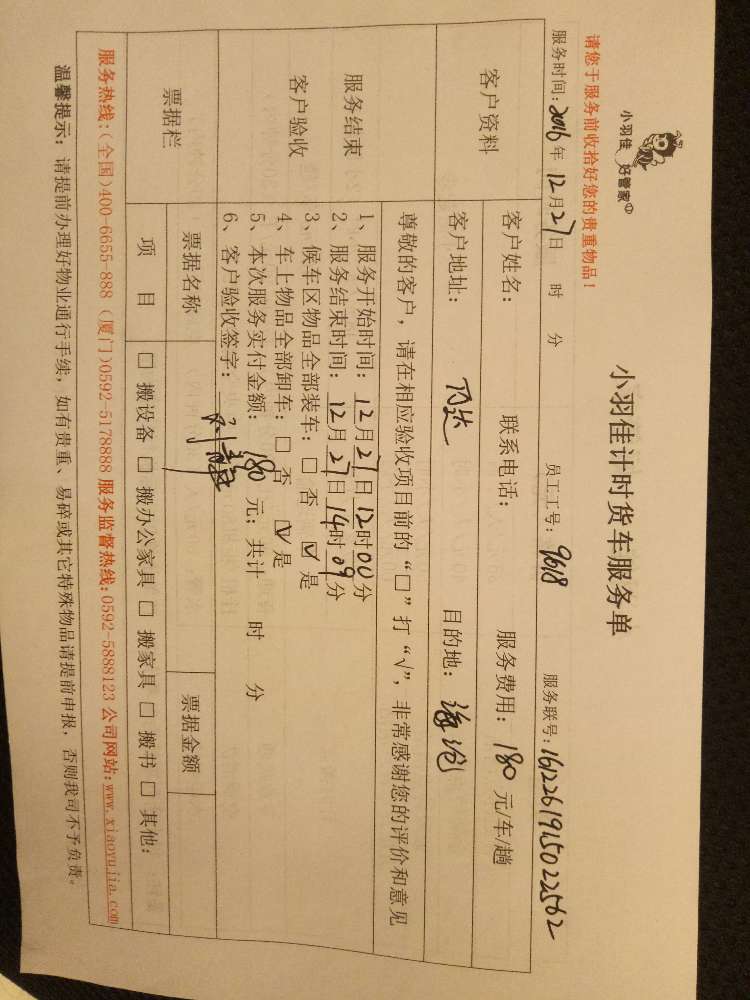 小羽佳 好管家
小羽佳计时货车服务单
请您于服务前收拾好您的贵重物品！
服务时间：2016年12月27日 时 分 员工工号：9618 服务联号：1612261915022562
客户资料
客户姓名： 联系电话： 服务费用：180元/车/趟
客户地址： 乃达 目的地：海沧
服务结束
客户验收
尊敬的客户，请在相应验收项目前的“□”打“√”，非常感谢您的评价和意见
1、服务开始时间：12月27日12时00分
2、服务结束时间：12月27日14时09分
3、候车区物品全部装车：□ 否 ☑ 是
4、车上物品全部卸车：□ 否 ☑ 是
5、本次服务实付金额：180元；共计 时 分
6、客户验收签字：
票据栏
票据名称 票据金额
项 目 □ 搬设备 □ 搬办公家具 □ 搬家具 □ 搬书 □ 其他：
服务热线：(全国)400-6655-888 (厦门)0592-5178888 服务监督热线：0592-5888123 公司网站：www.xiaoyujia.com
温馨提示：请提前办理好物业通行手续，如有贵重、易碎或其它特殊物品请提前申报，否则我司不予负责。